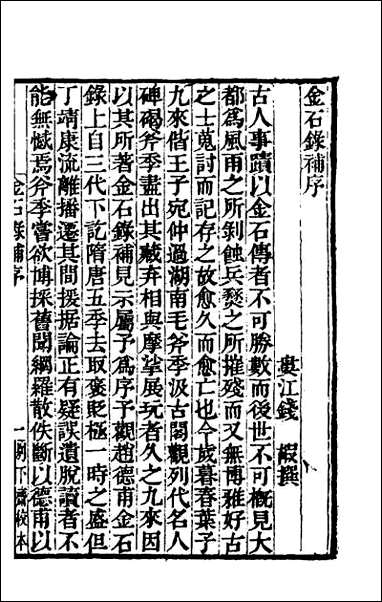 金石錄補序
婁江錢 嘏撰
古人事蹟以金石傳者不可勝數而後世不可概見大
都爲風雨之所剝蝕兵燹之所摧殘而又無博雅好古
之士蒐討而記存之故愈久而愈亡也今歲暮春葉子
九來偕王子宛仲過湖南毛斧季汲古閣觀列代名人
碑碣斧季盡出其藏弆相與摩挲展玩者久之九來因
以其所著金石錄補見示屬予爲序予觀趙德甫金石
錄上自三代下訖隋唐五季去取褒貶極一時之盛但
丁靖康流離播遷其間援据論正有疑誤遺脫讀者不
能無憾焉斧季嘗欲博採舊聞網羅散佚斷以德甫以
金石錄補序
一
別下齋校本